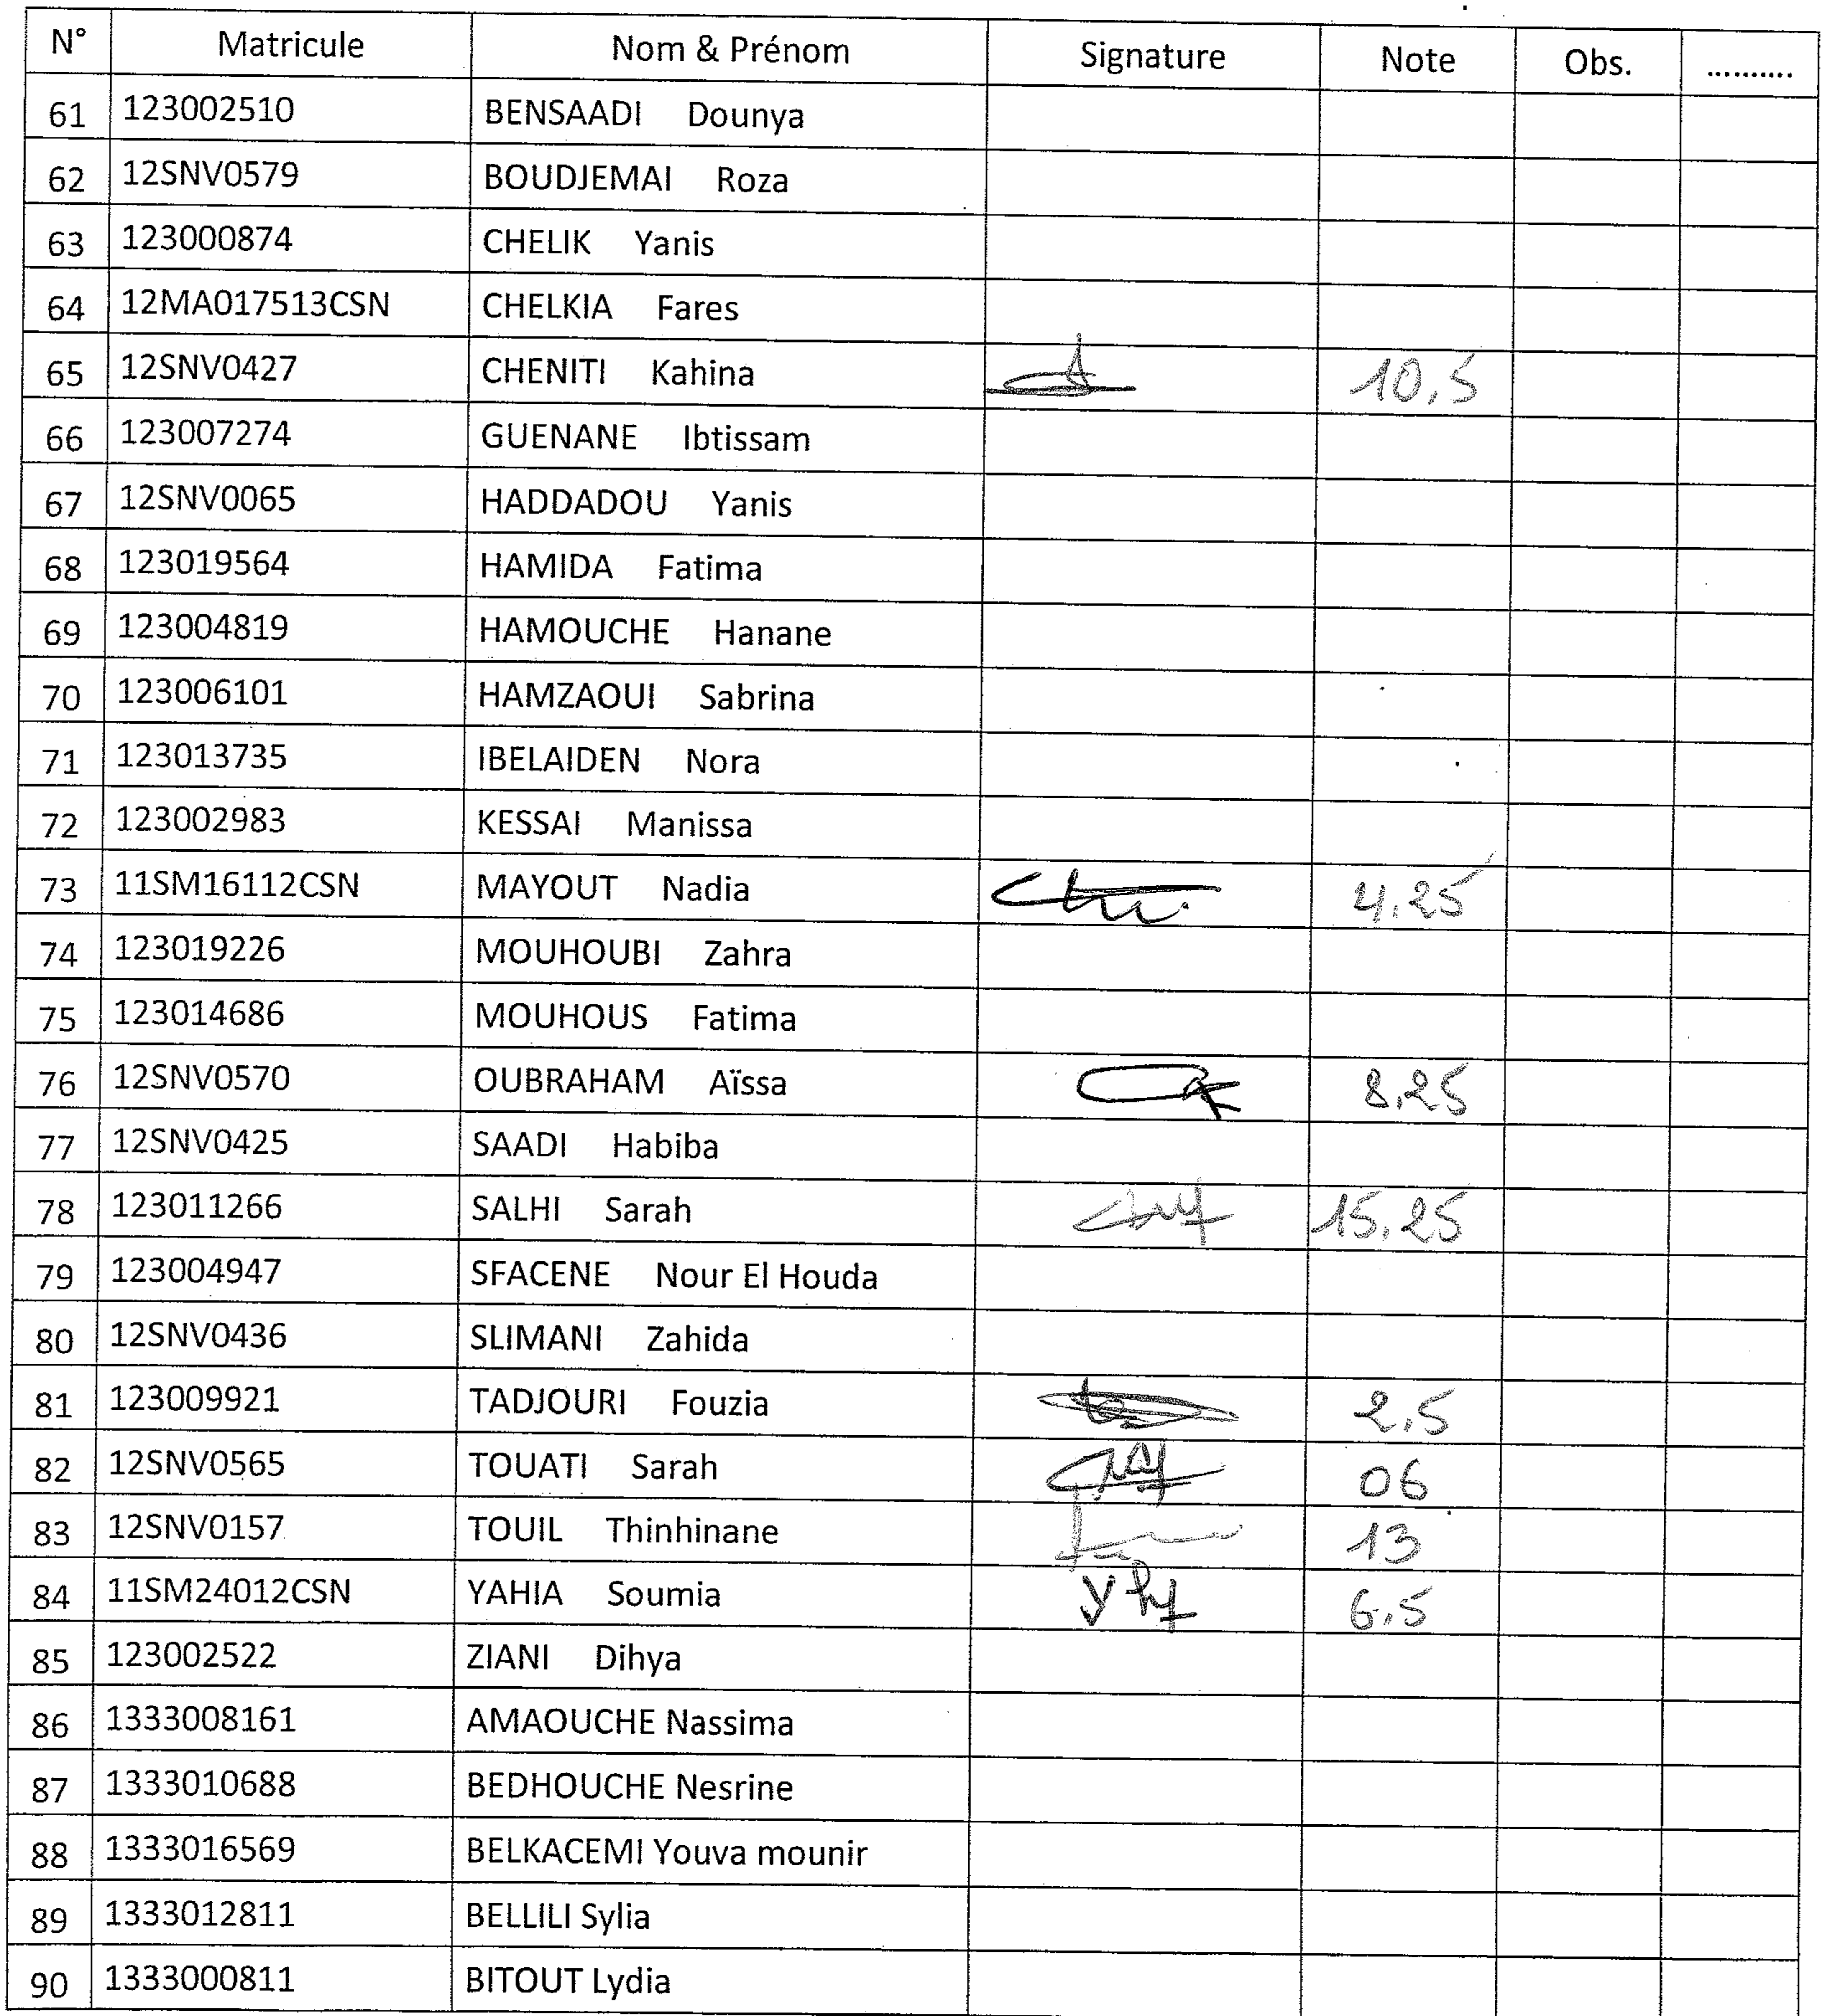 N° Matricule Nom & Prénom Signature Note Obs. ..........
61 123002510 BENSAADI Dounya
62 12SNV0579 BOUDJEMAI Roza
63 123000874 CHELIK Yanis
64 12MA017513CSN CHELKIA Fares
65 12SNV0427 CHENITI Kahina 10,5
66 123007274 GUENANE Ibtissam
67 12SNV0065 HADDADOU Yanis
68 123019564 HAMIDA Fatima
69 123004819 HAMOUCHE Hanane
70 123006101 HAMZAOUI Sabrina
71 123013735 IBELAIDEN Nora
72 123002983 KESSAI Manissa
73 11SM16112CSN MAYOUT Nadia 4,25
74 123019226 MOUHOUBI Zahra
75 123014686 MOUHOUS Fatima
76 12SNV0570 OUBRAHAM Aïssa 8,25
77 12SNV0425 SAADI Habiba
78 123011266 SALHI Sarah 15,25
79 123004947 SFACENE Nour El Houda
80 12SNV0436 SLIMANI Zahida
81 123009921 TADJOURI Fouzia 2,5
82 12SNV0565 TOUATI Sarah 06
83 12SNV0157 TOUIL Thinhinane 13
84 11SM24012CSN YAHIA Soumia 6,5
85 123002522 ZIANI Dihya
86 1333008161 AMAOUCHE Nassima
87 1333010688 BEDHOUCHE Nesrine
88 1333016569 BELKACEMI Youva mounir
89 1333012811 BELLILI Sylia
90 1333000811 BITOUT Lydia